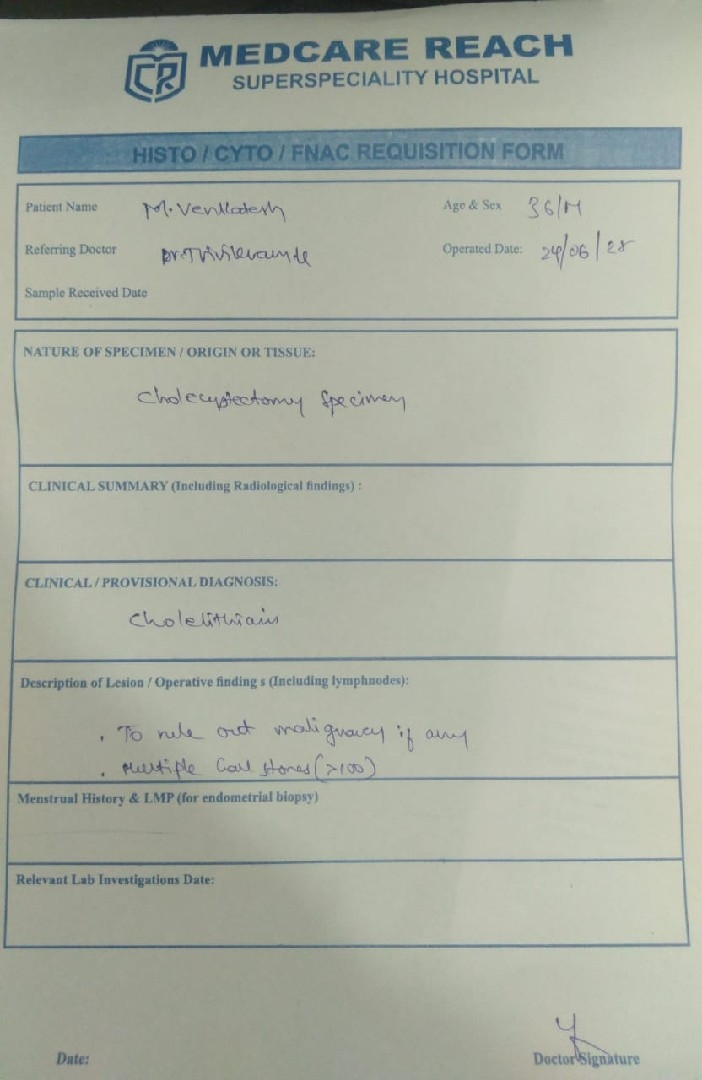 MEDCARE REACH
SUPERSPECIALITY HOSPITAL
HISTO / CYTO / FNAC REQUISITION FORM
Patient Name M. Venkatesh Age & Sex 36/M
Referring Doctor Operated Date: 24/06/28
Sample Received Date
NATURE OF SPECIMEN / ORIGIN OR TISSUE:
Cholecystectomy Specimen
CLINICAL SUMMARY (Including Radiological findings) :
CLINICAL / PROVISIONAL DIAGNOSIS:
Cholelithiasis
Description of Lesion / Operative finding s (Including lymphnodes):
. To rule out malignacy if any
. Multiple Gall stones (>100)
Menstrual History & LMP (for endometrial biopsy)
Relevant Lab Investigations Date:
Date: Doctor Signature